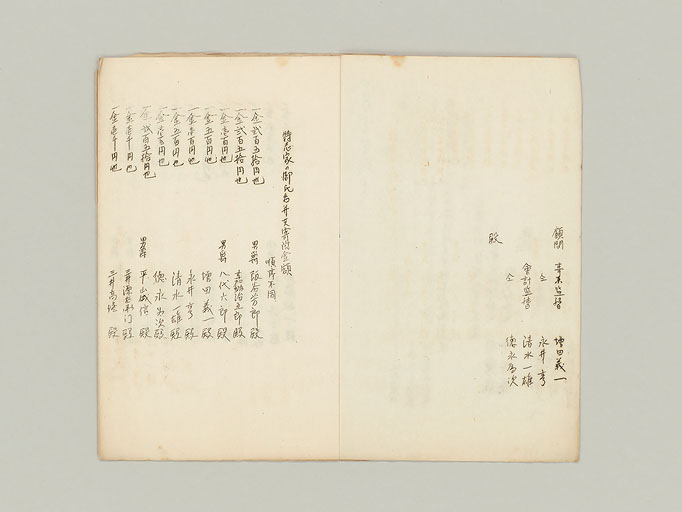 顧問 事業監督 増田義一
仝 永井亨
会計監督 清水一雄
仝 徳永為次
殿
特志家の御氏名并支寄附金額
順序不同
一金弐百五拾円也 男爵 阪谷芳郎 殿
一金弐百五拾円也 嘉納治五郎 殿
一金壱百円也 男爵 八代六郎 殿
一金五百円也 増田義一 殿
一金壱百円也 永井亨 殿
一金五百円也 清水一雄 殿
一金壱百円也 徳永為次 殿
一金弐百五拾円也 男爵 平山成信 殿
一金壱千円也 三井源右衛门 殿
一金壱千円也 三井高 殿